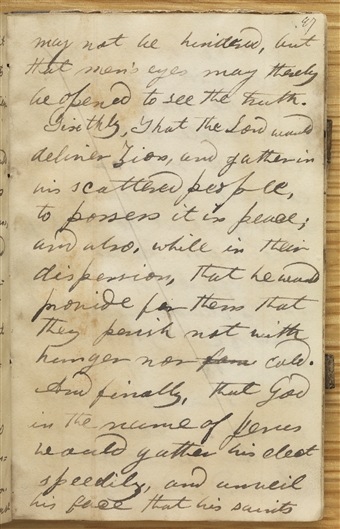 47
may not be hindered, but
that men's eyes may thereby
be opened to see the truth.
Sixthly, That the Lord would
deliver Zion, and gather in
his scattered people,
to possess it in peace;
and also, while in their
dispersion, that he would
provide for them that
they perish not with
hunger nor cold.
And finally, that God
in the name of Jesus
would gather his elect
speedily, and unveil
his face that his saints